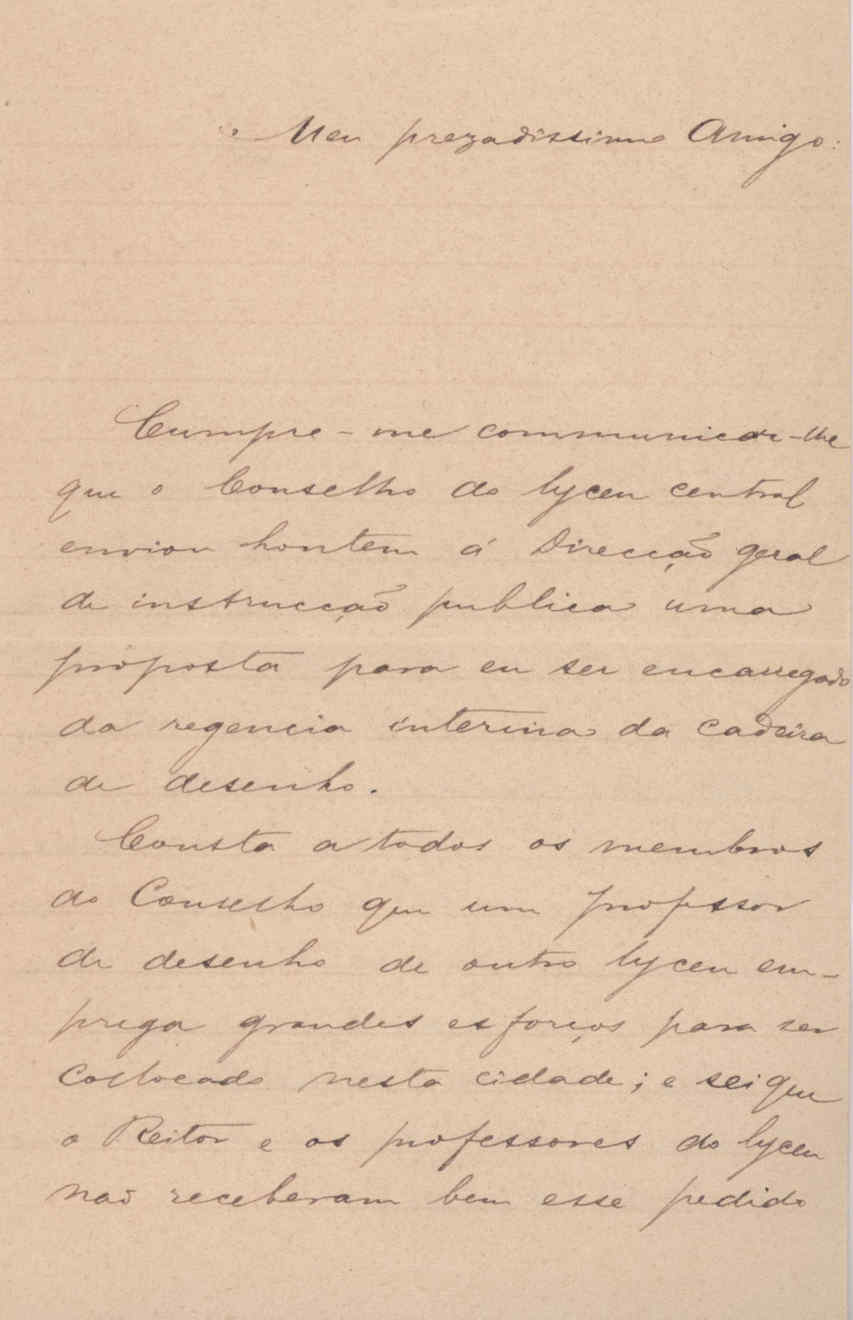 Meu prezadissimo Amigo:
Cumpre-me communicar-lhe
que o Conselho do lyceu central
enviou hontem á Direcção geral
de instrucção publica uma
proposta para eu ser encarregado
da regencia interina da cadeira
de desenho.
Consta a todos os membros
do Conselho que um professor
de desenho de outro lyceu em-
prega grandes esforços para ser
collocado nesta cidade; e sei que
o Reitor e os professores do lyceu
não receberam bem esse pedido